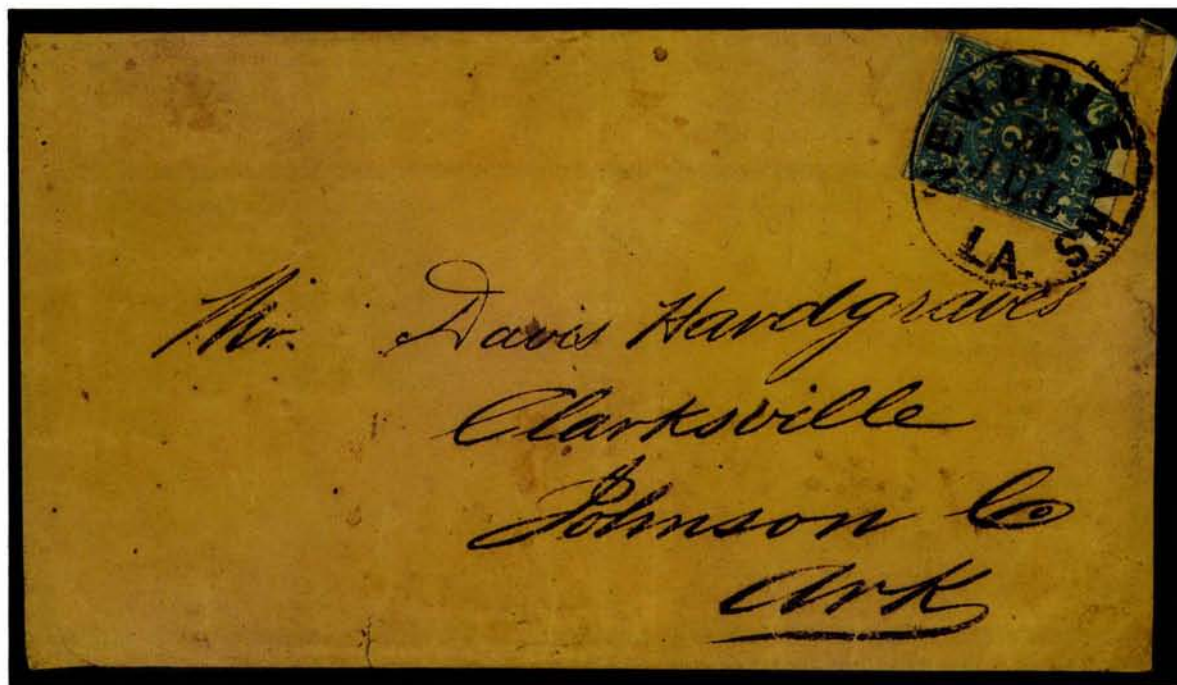 NEW ORLEANS
JUL
LA.
Mr. Davis Hardgraves
Clarksville
Johnson Co
Ark